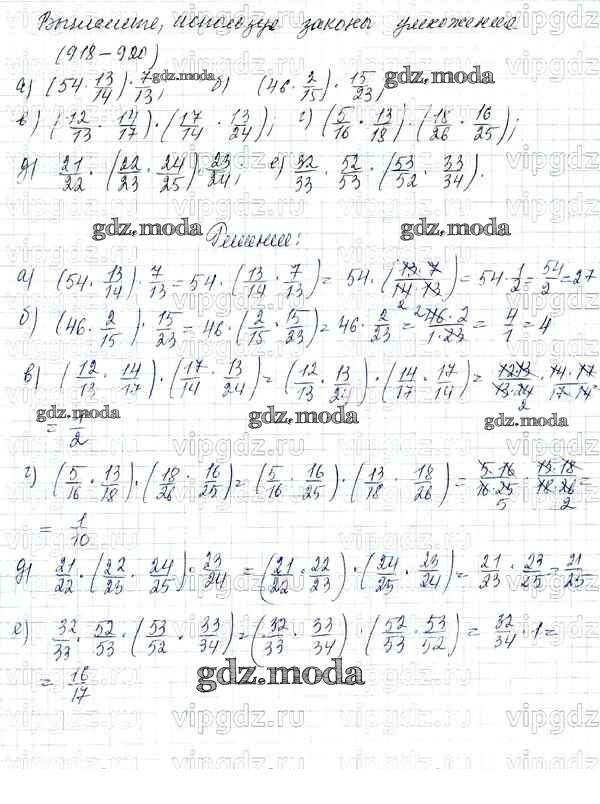 Вычислите, используя законы умножения
(918-920)
а) (54 · 13/14) · 7/13; б) (46 · 2/15) · 15/23;
в) (12/13 · 14/17) · (17/14 · 13/24); г) (5/16 · 13/18) · (18/26 · 16/25);
д) 21/22 · (22/23 · 24/25) · 23/24; е) 32/33 · 52/53 · (53/52 · 33/34).
gdz.moda gdz.moda
Решение:
а) (54 · 13/14) · 7/13 = 54 · (13/14 · 7/13) = 54 · (13 · 7 / 14 · 13) = 54 · 1/2 = 54/2 = 27
б) (46 · 2/15) · 15/23 = 46 · (2/15 · 15/23) = 46 · 2/23 = 46 · 2 / 1 · 23 = 4/1 = 4
в) (12/13 · 14/17) · (17/14 · 13/24) = (12/13 · 13/24) · (14/17 · 17/14) = 12 · 13 / 13 · 24 · 14 · 17 / 17 · 14 =
gdz.moda gdz.moda gdz.moda
= 1/2
г) (5/16 · 13/18) · (18/26 · 16/25) = (5/16 · 16/25) · (13/18 · 18/26) = 5 · 16 / 16 · 25 · 13 · 18 / 18 · 26 =
= 1/10
д) 21/22 · (22/23 · 24/25) · 23/24 = (21/22 · 22/23) · (24/25 · 23/24) = 21/23 · 23/25 = 21/25
е) 32/33 · 52/53 · (53/52 · 33/34) = (32/33 · 33/34) · (52/53 · 53/52) = 32/34 · 1 =
= 16/17
gdz.moda
vipgdz.ru